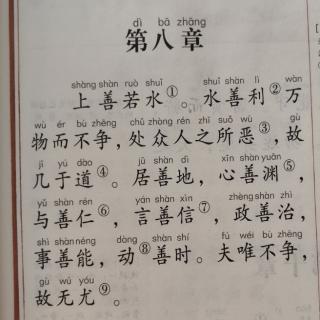 dì bā zhāng
第八章
shàng shàn ruò shuǐ shuǐ shàn lì wàn
上善若水①。水善利②万
wù ér bù zhēng chǔ zhòng rén zhī suǒ wù gù
物而不争，处众人之所恶③，故
jī yú dào jū shàn dì xīn shàn yuān
几于道④。居善地，心善渊⑤，
yǔ shàn rén yán shàn xìn zhèng shàn zhì
与善仁⑥，言善信⑦，政善治，
shì shàn néng dòng shàn shí fú wéi bù zhēng
事善能，动⑧善时。夫唯不争，
gù wú yóu
故无尤⑨。